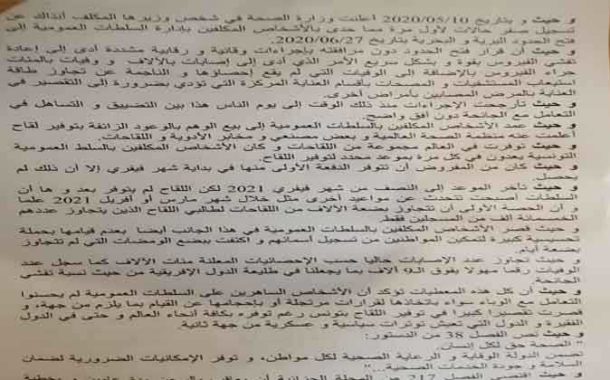 و حيث و بتاريخ 2020/05/10 أعلنت وزارة الصحة في شخص وزيرها المكلف آنذاك عن
تسجيل صفر حالات لأول مرة مما حدى بالأشخاص المكلفين بإدارة السلطات العمومية إلى
فتح الحدود البرية و البحرية بتاريخ 2020/06/27.
و حيث أن قرار فتح الحدود دون مرافقته بإجراءات وقائية و رقابية مشددة أدى إلى إعادة
تفشي الفيروس بقوة و بشكل سريع الأمر الذي أدى إلى إصابات بالآلاف و وفيات بالمئات
جراء الفيروس بالإضافة إلى الوفيات التي لم يقع إحصاؤها و الناجمة عن تجاوز طاقة
استيعاب المستشفيات و المصحات بأقسام العناية المركزة التي تؤدي بضرورة إلى التقصير في
العناية بالمرضى المصابين بأمراض أخرى.
و حيث تأرجحت الإجراءات منذ ذلك الوقت إلى يوم الناس هذا بين التضييق و التساهل في
التعامل مع الجائحة دون أفق واضح.
و حيث عمد الأشخاص المكلفين بالسلطات العمومية إلى بيع الوهم بالوعود الزائفة بتوفير لقاح
أعلنت عنه منظمة الصحة العالمية و بعض مصنعي و مخابر الأدوية و اللقاحات.
و حيث توفرت في العالم مجموعة من اللقاحات و كان الأشخاص المكلفين بالسلط العمومية
التونسية يعدون في كل مرة بموعد محدد لتوفير اللقاح.
و حيث كان من المفروض أن تتوفر الدفعة الأولى منها في بداية شهر فيفري إلا أن ذلك لم
يحصل.
و حيث تأخر الموعد إلى النصف من شهر فيفري 2021 لكن اللقاح لم يتوفر بعد و ها أن
السلطات أصبحت تتحدث عن مواعيد أخرى مثل خلال شهر مارس أو أفريل 2021 علما
و أن الحصة الأولى لن تتجاوز بضعة الآلاف من اللقاحات لطالبي اللقاح الذين يتجاوز عددهم
الخمسمائة ألف من المسجلين فقط.
و حيث قصر الأشخاص المكلفين بالسلطات العمومية في هذا الجانب أيضا بعدم قيامها بحملة
تحسيسية كبيرة لتمكين المواطنين من تسجيل أسمائهم و اكتفت ببضع الومضات التي لم تتجاوز
بضعة أيام.
و حيث تجاوز عدد الإصابات حاليا حسب الإحصائيات المعلنة مئات الآلاف كما سجل عدد
الوفيات رقما مهولا يفوق الـ8 آلاف بما يجعلنا في طليعة الدول الإفريقية من حيث نسبة تفشي
الجائحة.
و حيث أن كل هذه المعطيات تؤكد أن الأشخاص الساهرين على السلطات العمومية لم يحسنوا
التعامل مع الوباء سواء باتخاذها لقرارات مرتجلة أو بإحجامها عن القيام بما يلزم من جهة، و
قصرت تقصيرا كبيرا في توفير اللقاح بتونس رغم توفره بكافة أنحاء العالم و حتى في الدول
الفقيرة و الدول التي تعيش توترات سياسية و عسكرية من جهة ثانية.
و حيث نص الفصل 38 من الدستور:
" الصحة حق لكل إنسان.
تضمن الدولة الوقاية و الرعاية الصحية لكل مواطن، و توفر الإمكانيات الضرورية لضمان
السلامة و جودة الخدمات الصحية..."
و حيث اقتضى الفصل 217 من المجلة الجزائية أن